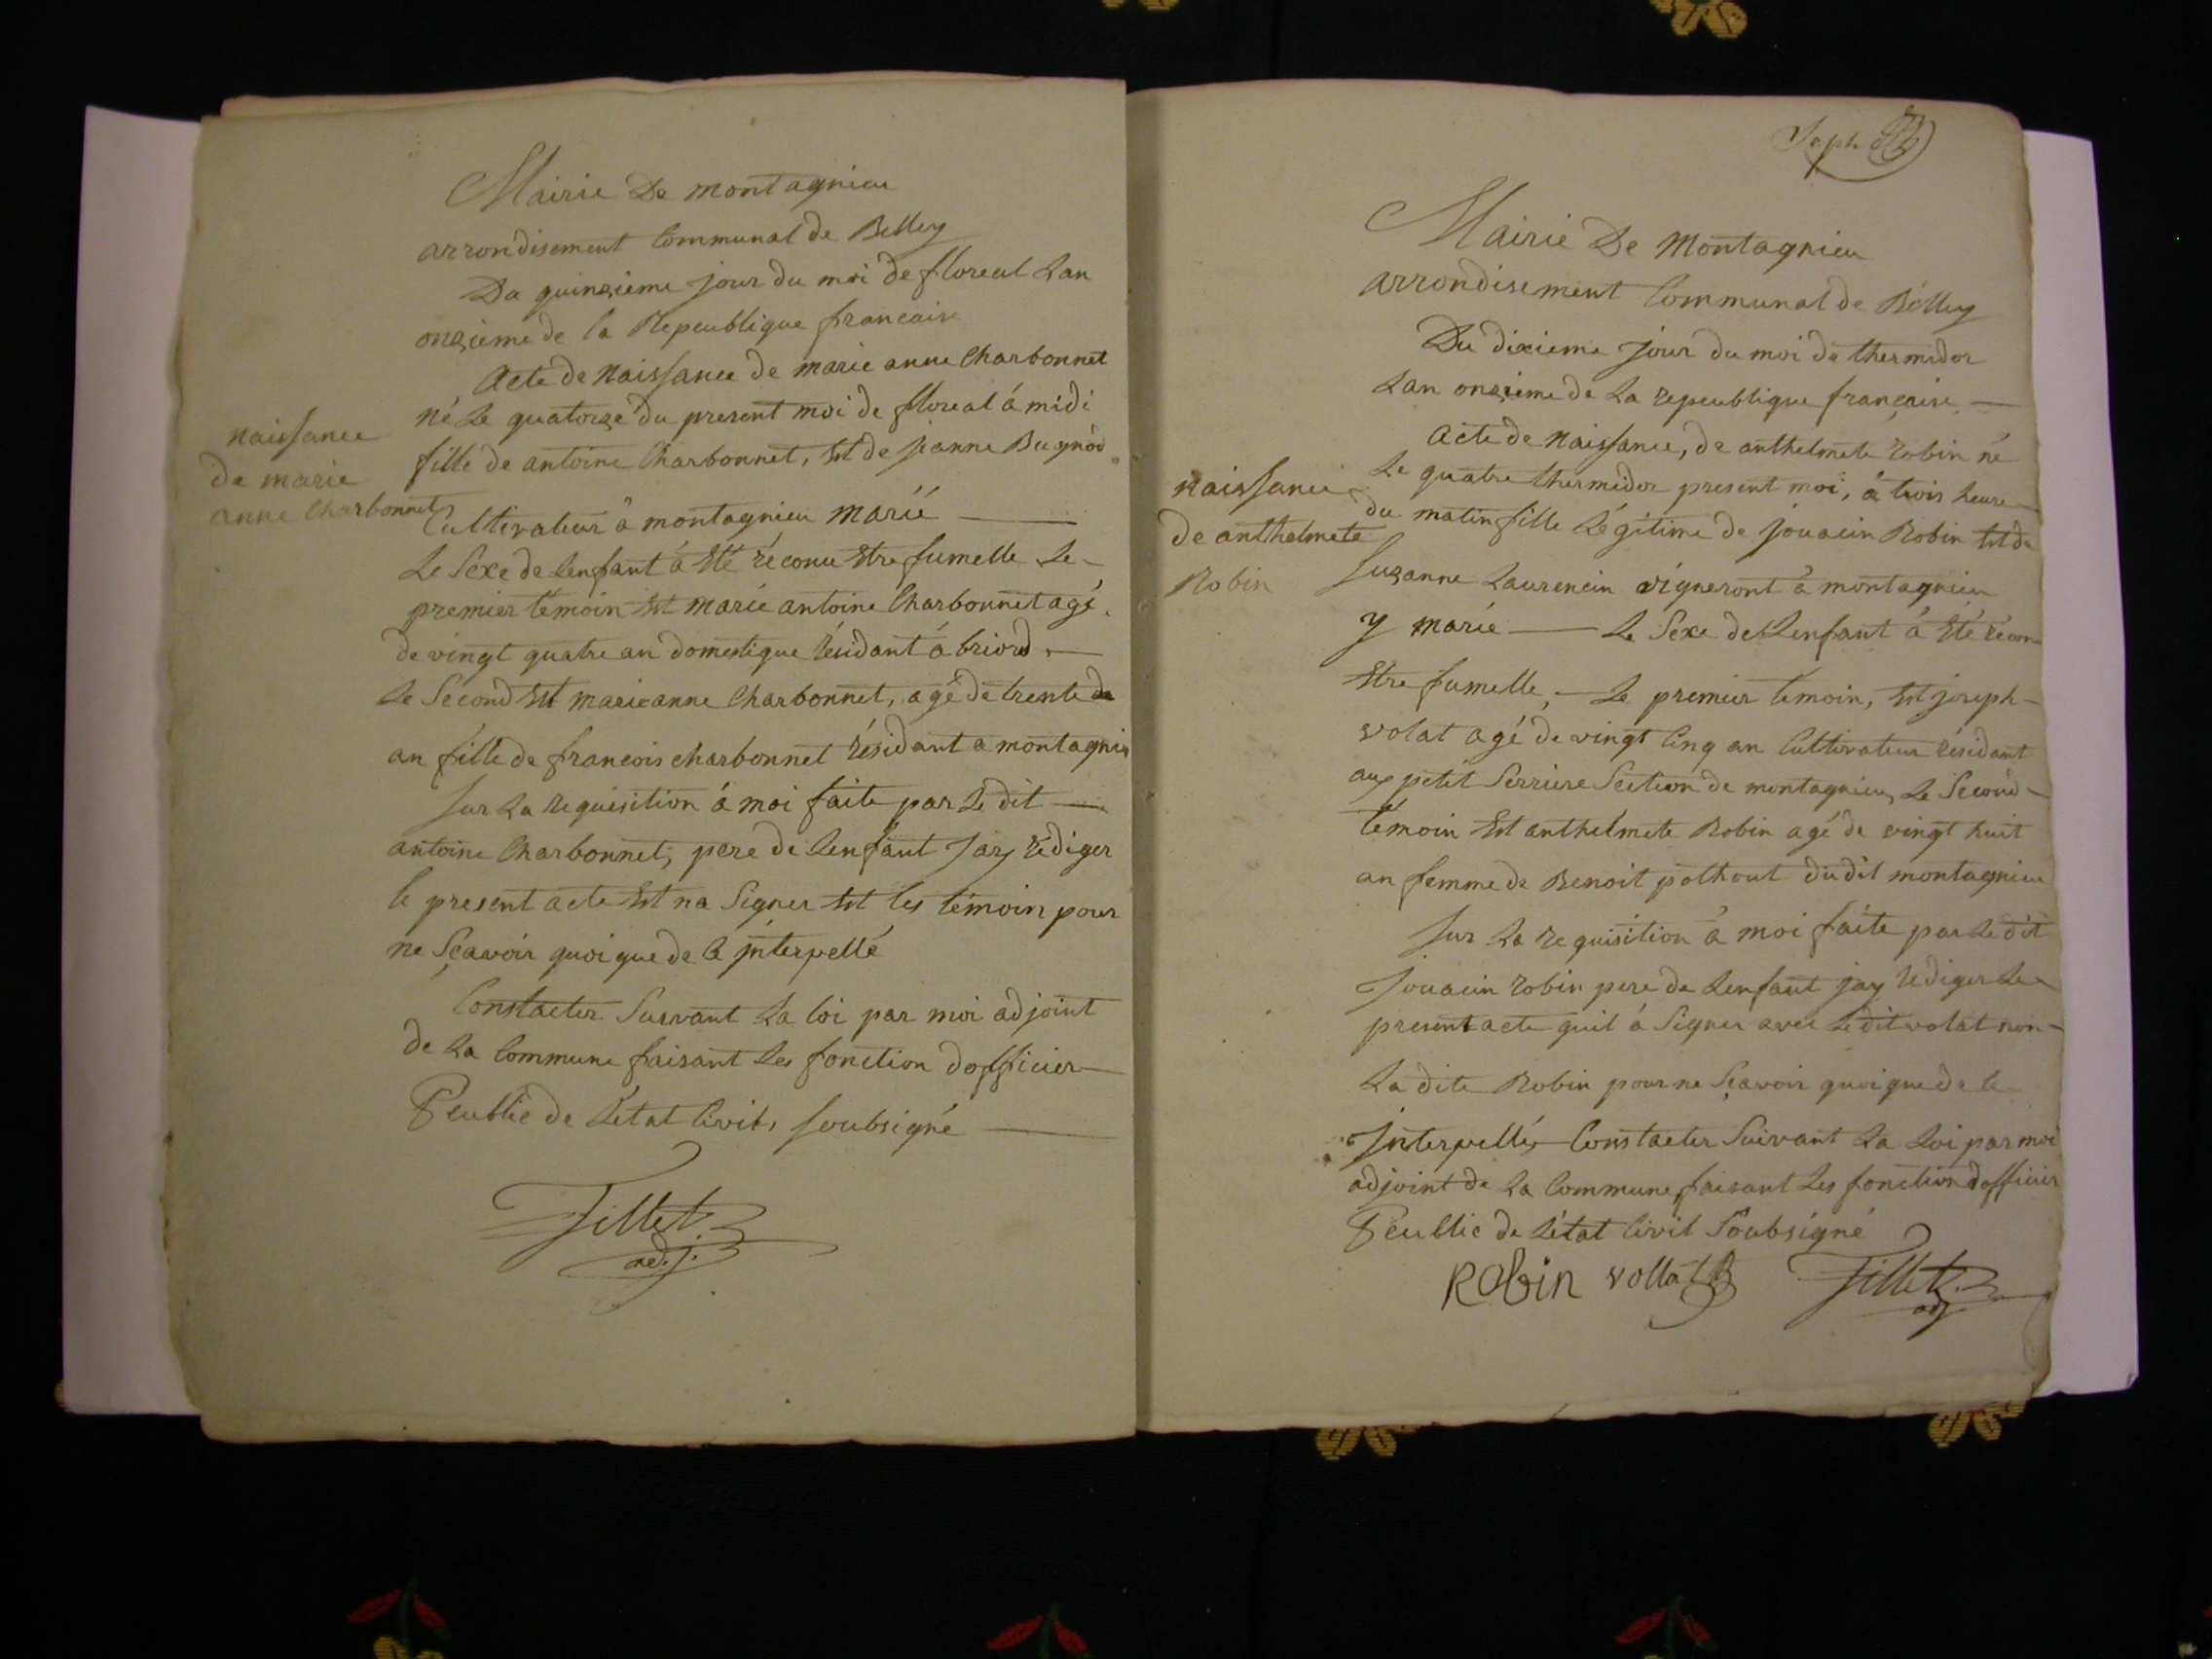 Mairie De montagnieu
arrondisement Communal de Belley
Du quinzieme jour du moi de floreal Lan
onzieme de la Repeublique francaise
Acte de Naissance de marie anne Charbonnet
né Le quatorze du present moi de floreal á midi
fille de antoine Charbonnet, Et de jeanne Bugnod
Cultivateur á montagnieu marié
Le Sexe de Lenfant á Eté réconu Etre fumelle Le
premier témoin Est marie antoine Charbonnet agé
de vingt quatre an domestique résidant á briord
Le Sécond Est marie anne Charbonnet, agé de trente
an fille de francois charbonnet résidant a montagnieu
Sur La requisition á moi faite par Le dit
antoine Charbonnet, pere de Lenfant Jay rédiger
le present acte Et na Signer Et les témoin pour
ne Sçavoir quoi que de ce jnterpellé
Constaeter Suivant La loi par moi adjoint
de La Commune faisant Les fonction dofficier
Peublic de Létat Civil, Soubsigné
Tillet
adj.
naissance
de marie
anne Charbonnet
Mairie De Montagnieu
arrondisement Communal de Bélley
Du dixieme jour du moi de thermidor
Lan onzieme de La repeublique française
Acte de Naissance, de anthelmete robin né
Le quatre thermidor present moi, á trois heure
du matin fille Légitime de jouacin Robin Et de
Suzanne Laurencin vigneront á montagnieu
y marié Le Sexe de Lenfant á Eté récon
Etre fumelle, Le premier témoin, Est joseph
volat agé de vingt Cinq an Cultivateur résidant
au petit Serriere Section de montagnieu, Le Sécond
témoin Est anthelmete Robin agé de vingt huit
an femme de Benoit polhout dudit montagnieu
Sur La requisition á moi faite par Le dit
Jouacin robin pere de Lenfant jay rediger Le
present acte quil á Signer avec Le dit volat non
La dite Robin pour ne Sçavoir quoi que de ce
jnterpellés Constaeter Suivant La Loi par moi
adjoint de La Commune faisant Les fonction dofficier
Peublic de Létat Civil Soubsigné
Robin vollat Tillet
adj
naissance
de anthelmete
Robin